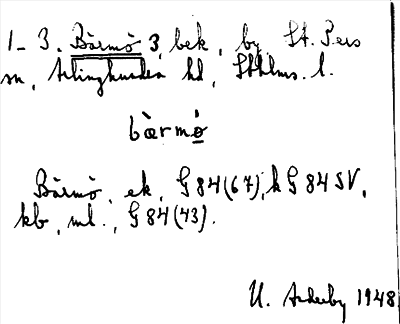 1-3. Bärmö 3, bek., by St. Pers
sn, Ärlinghundra hd, Sthlms. l.
bàrmö̀
Bärmö, ek., G 84 (67), k G 84 SV,
kb, ml., G 84 (43).
U. 1948